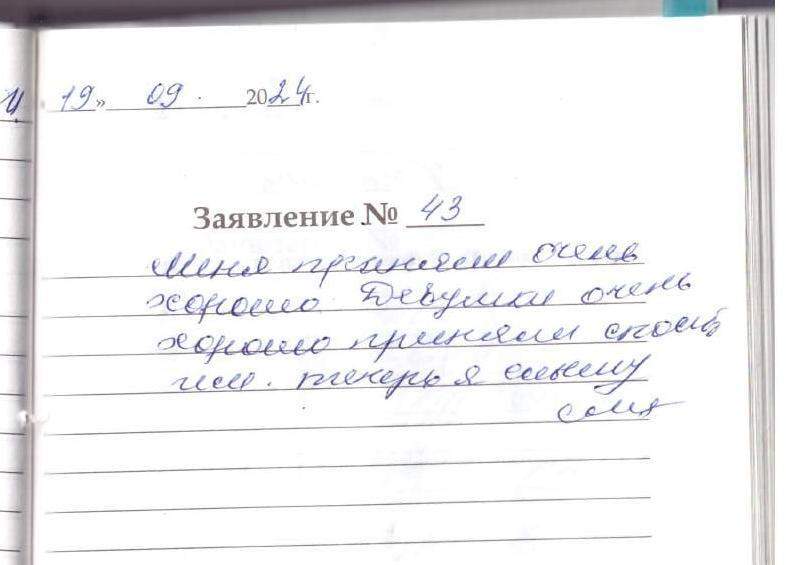 19» 09. 2024г.
Заявление № 43
Меня приняли очень
хорошо Девушки очень
хорошо приняли спасибо
им. теперь я слышу